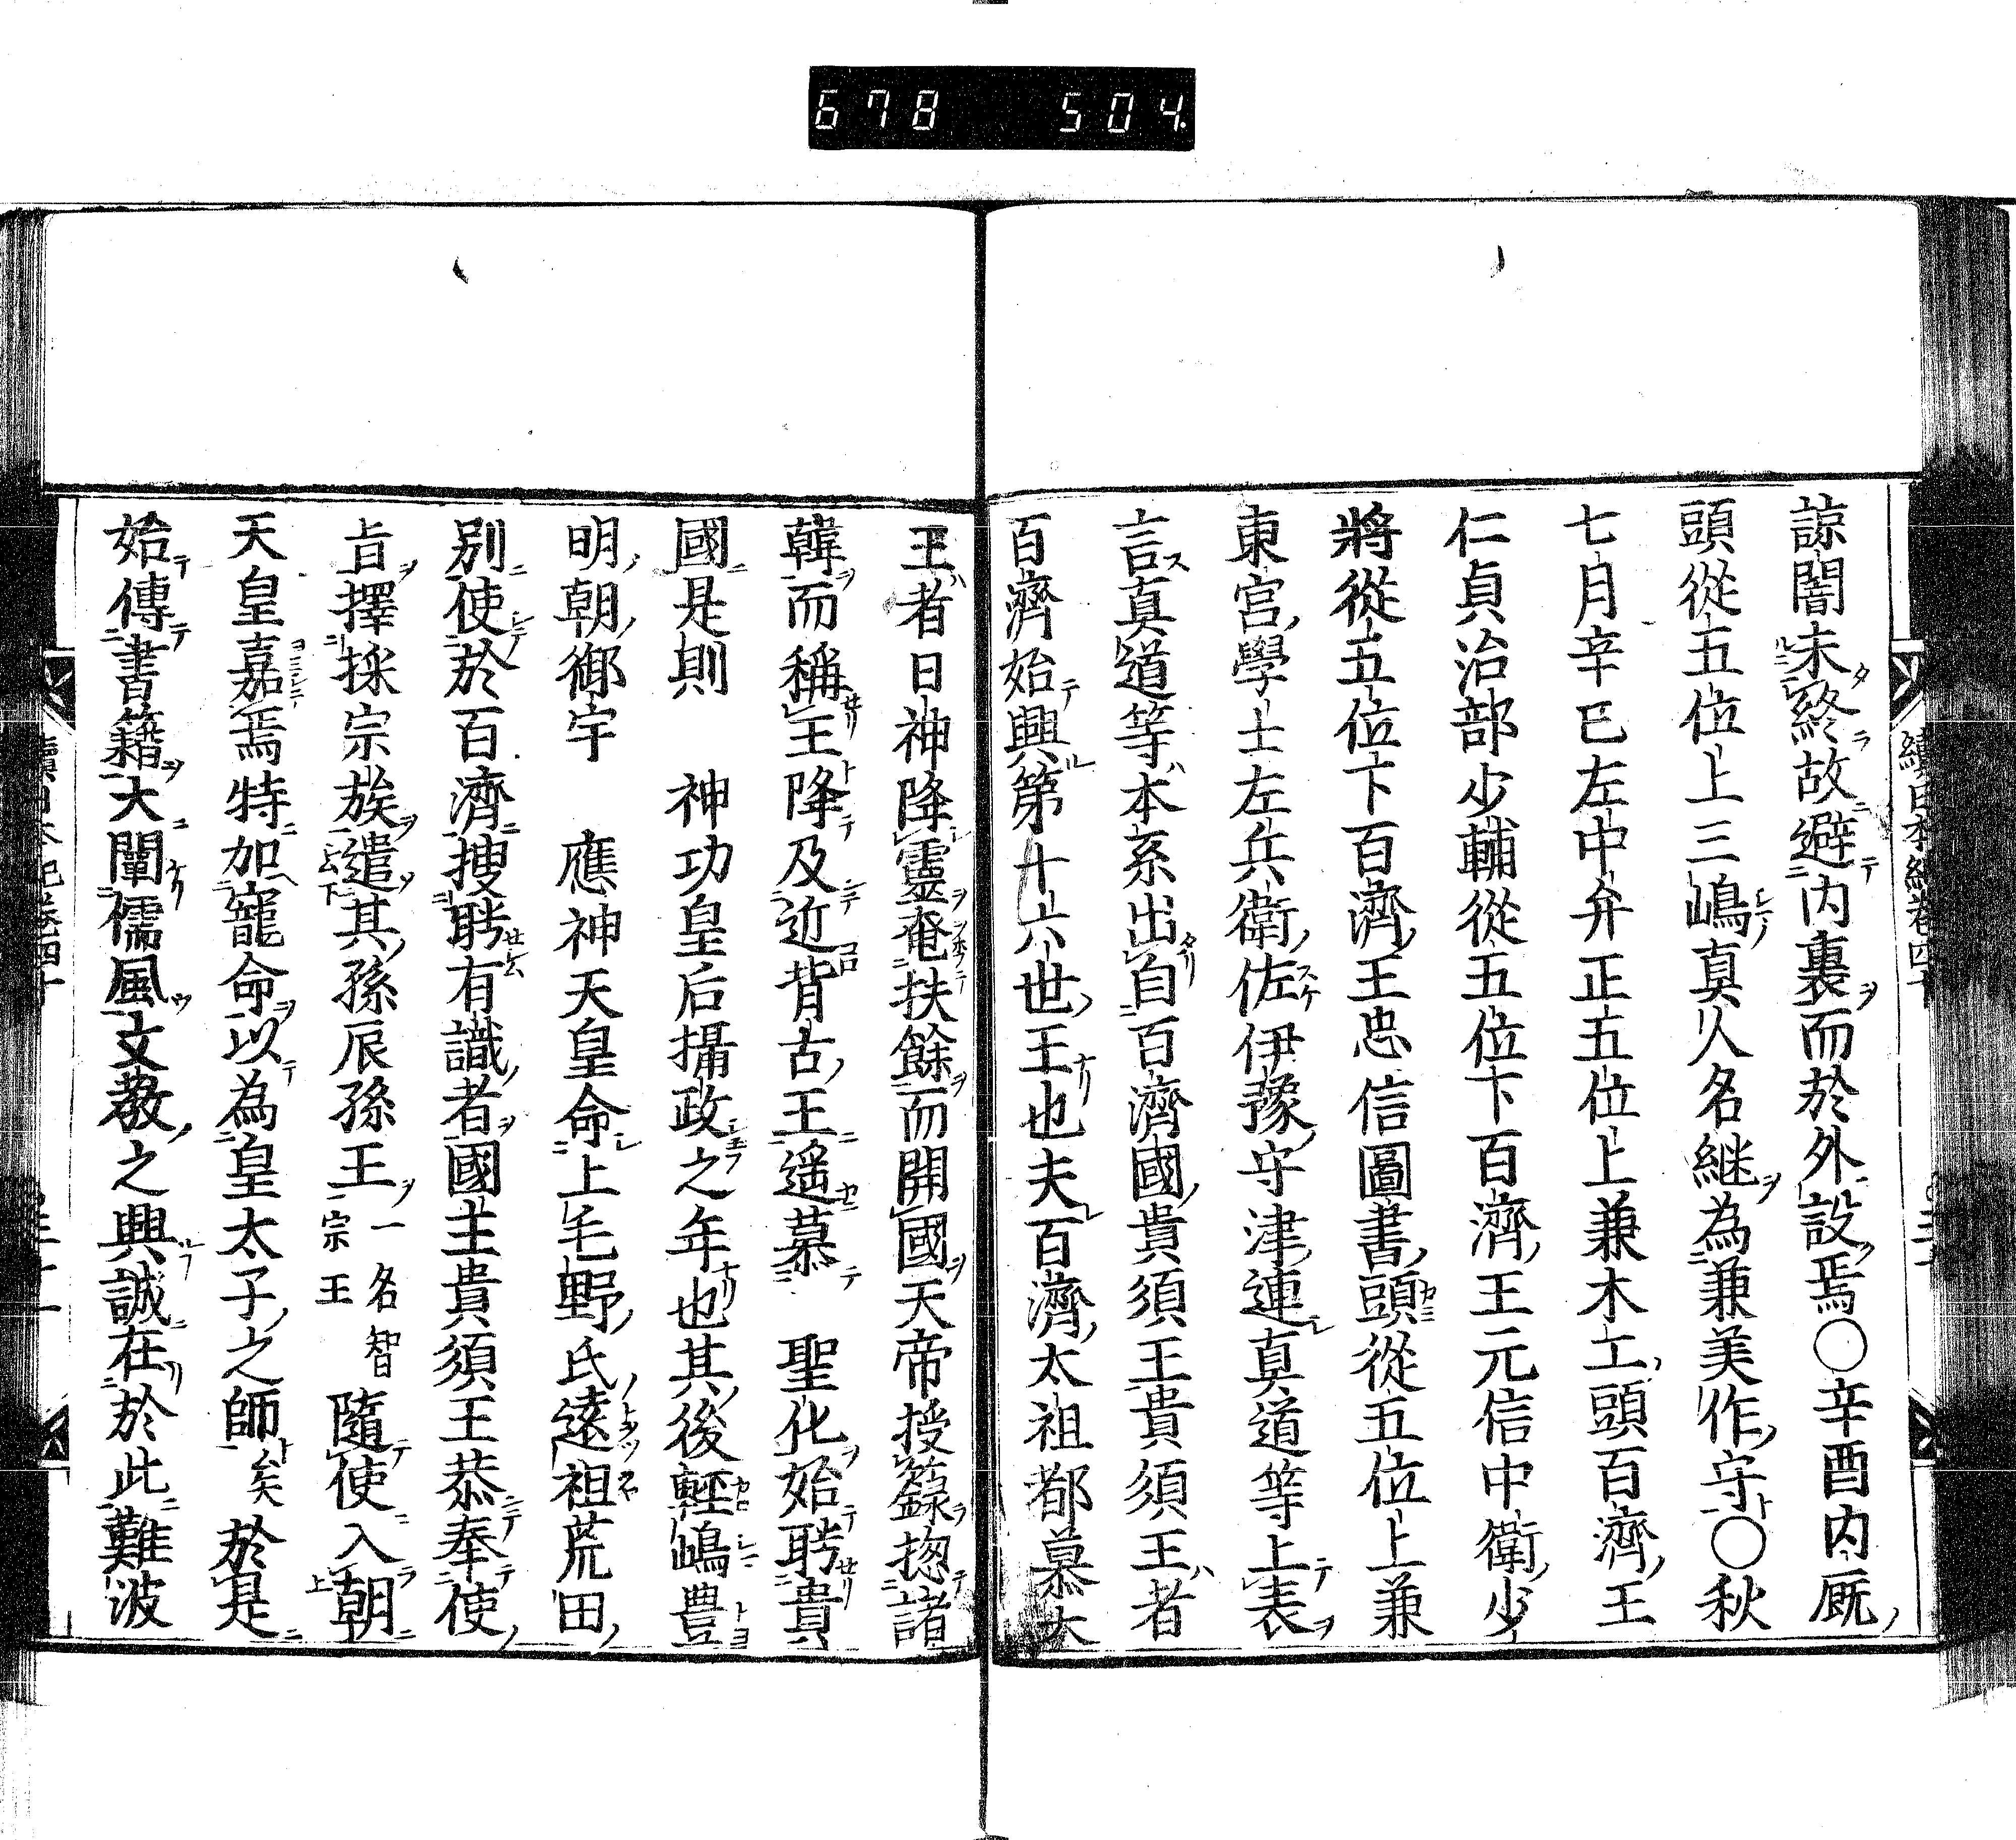 678 504.
諒闇未終故避内裏而於外設焉〇辛酉内厩
頭從五位上三嶋真人名継為兼美作守〇秋
七月辛巳左中弁正五位上兼木工頭百濟王
仁貞治部少輔從五位下百濟王元信中衛少
將從五位下百濟王忠信圖書頭從五位上兼
東宮學士左兵衛佐伊豫守津連真道等上表
言真道等本系出自百濟國貴須王貴須王者
百濟始興第十六世王也夫百濟太祖都慕大
王者日神降靈奄扶餘而開國天帝授籙揔諸
韓而稱王降及近背古王遥慕 聖化始聘貴
國是則 神功皇后攝政之年也其後軽嶋豊
明朝御宇 應神天皇命上毛野氏遠祖荒田
別使於百濟搜聘有識者國主貴須王恭奉使
旨擇採宗族遣其孫辰孫王一名智宗王隨使入朝
天皇嘉焉特加寵命以為皇太子之師矣於是
始傳書籍大闡儒風文教之興誠在於此難波